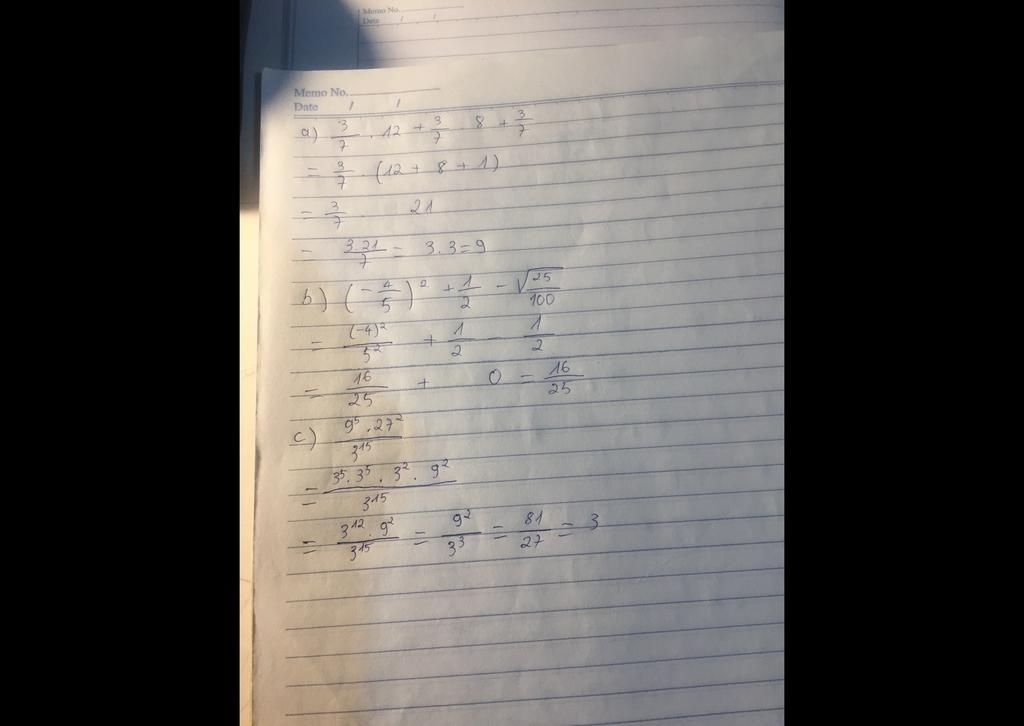 Memo No.
Date / /
Memo No.
Date / /
a) 3/7 . 12 + 3/7 8 + 3/7
= 3/7 . (12 + 8 + 1)
= 3/7 . 21
= 3.21/7 = 3.3=9
b) (-4/5)² + 1/2 - √25/100
= (-4)²/5² + 1/2 - 1/2
= 16/25 + 0 = 16/25
c) 9⁵ . 27²/3¹⁵
= 3⁵ . 3⁵ . 3² . 9²/3¹⁵
= 3¹² . 9²/3¹⁵ = 9²/3³ = 81/27 = 3